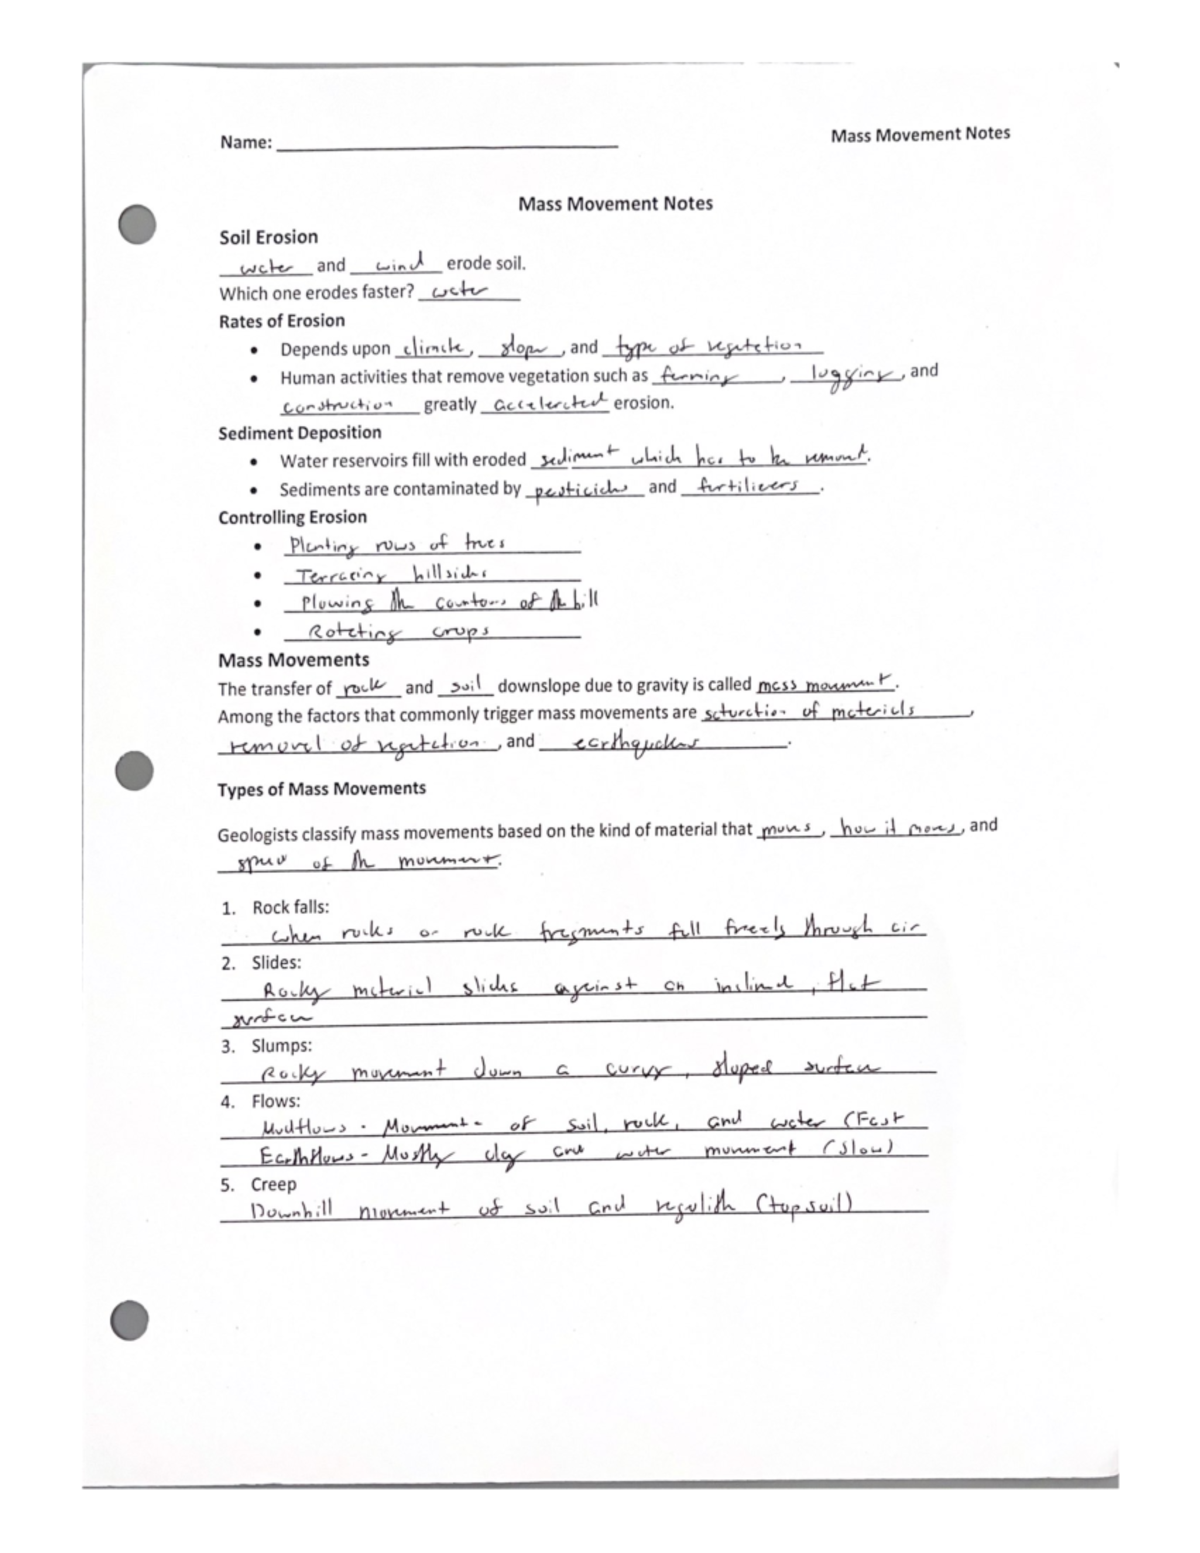 Name: Mass Movement Notes
Mass Movement Notes
Soil Erosion
water and wind erode soil.
Which one erodes faster? water
Rates of Erosion
• Depends upon climate, slope, and type of vegetation
• Human activities that remove vegetation such as farming, logging, and
construction greatly accelerated erosion.
Sediment Deposition
• Water reservoirs fill with eroded sediment which has to be
• Sediments are contaminated by pesticides and fertilizers.
Controlling Erosion
• Planting rows of trees
• Terracing hillsides
• Plowing the contours of the hill
• Rotating crops
Mass Movements
The transfer of rock and soil downslope due to gravity is called mass movement.
Among the factors that commonly trigger mass movements are saturation of materials,
removal of vegetation, and earthquakes.
Types of Mass Movements
Geologists classify mass movements based on the kind of material that moves, how it moves, and
speed of the movement.
1. Rock falls:
when rocks or rock fragments fall freely through air
2. Slides:
Rocky material slides against an inclined, flat
surface
3. Slumps:
Rocky movement down a curvy, sloped surface
4. Flows:
Mudflows - Movement of soil, rock, and water (Fast
Earthflows - Mostly clay and water movement (slow)
5. Creep
Downhill movement of soil and regolith (topsoil)